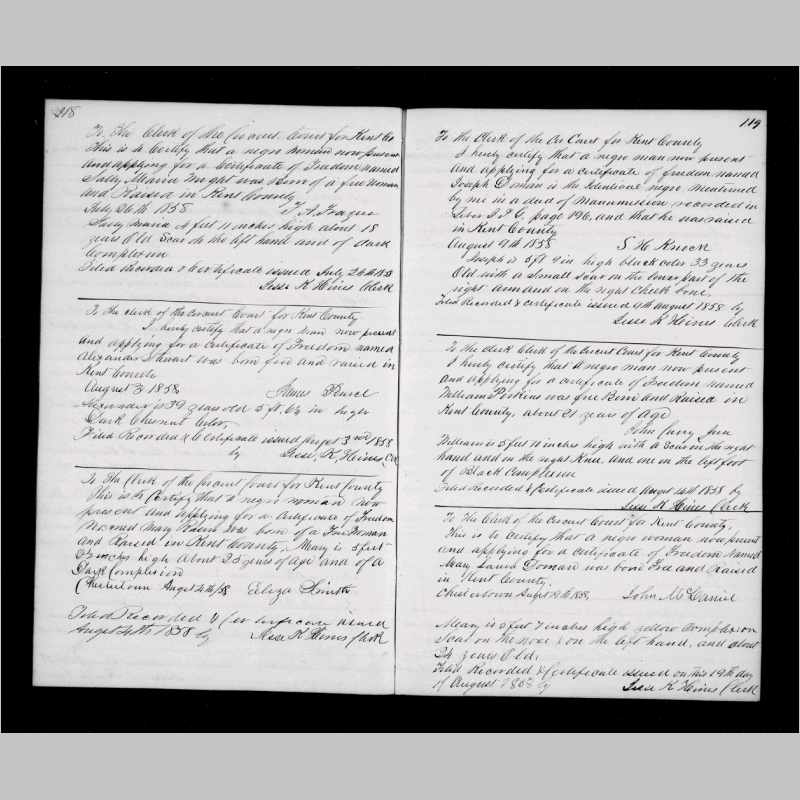 118
To the Clerk of the Circuit Court for Kent Co
This is to Certify that a negro woman now present
and applying for a Certificate of Freedom named
Sally Maria Wright was born of a free woman
and Raised in Kent County
July 26th 1858 T A Frazier
Sally Maria 4 feet 11 inches high about 18
years Old Scar on the left hand and of dark
Complexion
Filed Recorded & Certificate issued July 26th 1858
Jesse K Hines Clerk
To the clerk of the circuit Court for Kent County
I hereby certify that a negro man now present
and applying for a Certificate of Freedom named
Alexander Stuart was born free and raised in
Kent County
August 3 1858 James Pearce
Alexander is 39 years old 5 ft. 6½ in high
Dark Chesnut Color,
Filed Recorded & Certificate issued August 3rd 1858
by Jesse K, Hines, Clk
To the Clerk of the Circuit Court for Kent County
This is to Certify that a negro woman now
present and applying for a Certificate of Freedom
Named Mary Rasin was born of a Free Woman
and Raised in Kent County, Mary is 5 feet
inches high about 23 years of age and of a
Dark Complexion
Chestertown August 4th /58 Eliza Smith
Filed Recorded & Certificate issued
August 4th 1858 by Jesse K Hines Clerk
119
To the Clerk of the Cir Court for Kent County
I hereby certify that a negro man now present
and applying for a certificate of freedom named
Joseph Doman is the Identical negro mentioned
by me in a deed of Manumission recorded in
Liber page 196, and that he was raised
in Kent County
August 9th 1858 S H Knock
Joseph is 5 ft 9 in high black color 33 years
Old with a small scar on the lower part of the
right arm and on the right Cheek bone,
Filed Recorded & certificate issued 9th August 1858 by
Jesse K Hines Clerk
To the clerk Clerk of the Circuit Court for Kent County
I hereby certify that a negro man now present
and applying for a certificate of Freedom named
William Perkins was free Born and Raised in
Kent County, about 21 years of age
John Jun
William is 5 feet 11 inches high with a Scar in the right
hand and on the right Knee, and one on the left foot
of Black Complexion
Filed Recorded & Certificate issued August 14th 1858 by
Jesse K Hines Clerk
To The Clerk of the Circuit Court for Kent County,
This is to certify that a negro woman now present
and applying for a certificate of Freedom Named
Mary Laura Doman was born Free and Raised
in Kent County
Chestertown August 19th 1858, John McDaniel
Mary is 5 feet 7 inches high yellow Complexion
Scar on the nose & on the left hand, and about
24 years Old,
Filed Recorded & Certificate issued on this 19th day
of August by Jesse K Hines Clerk